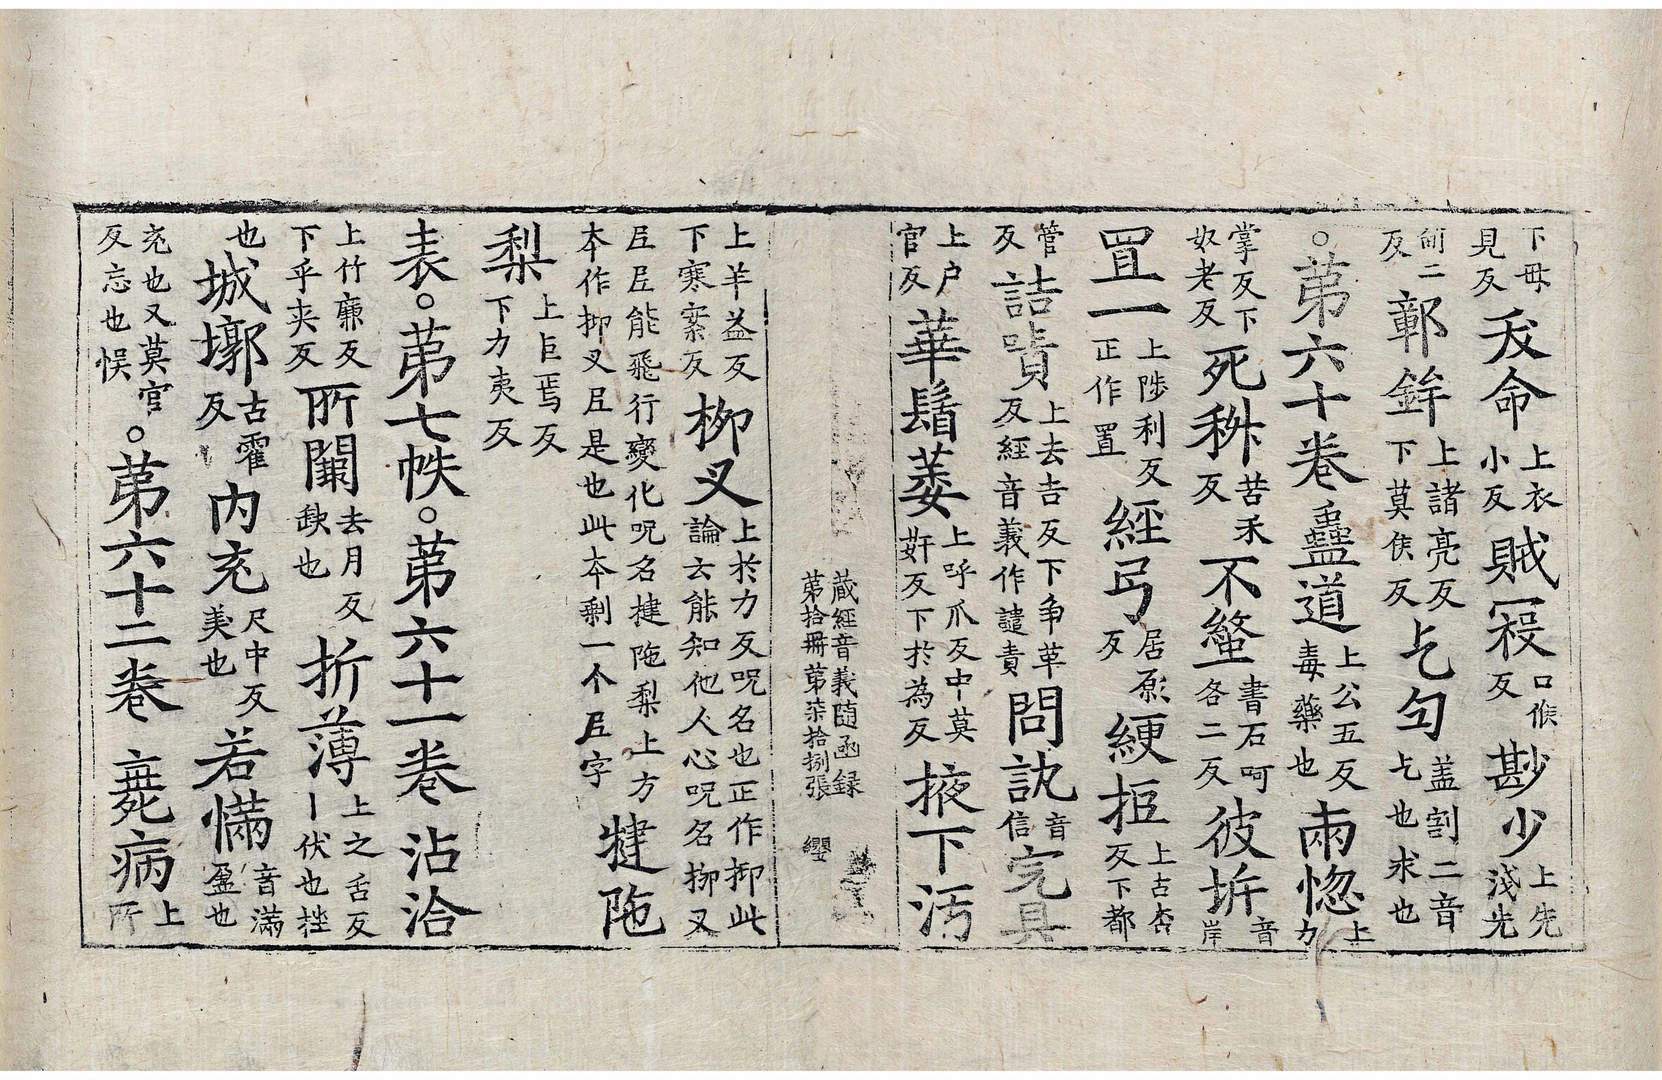 下毋見反 夭命 上衣小反 賊寇 口候反 尠少 上先淺先
䏶二反 鄣鉾 上諸亮反下莫侯反 乞匃 盖割二音乞也求也
○苐六十卷 蠱道 上公五反毒藥也 兩惚 上力
掌反下奴老反 死秌 苦禾反 不螫 書石呵各二反 彼垿 音岸
罝一 上陟利反正作置 經弓 居厡反 綆拒 上古杏反下都
管反 詰嘖 上去吉反下争革反經音義作讉責 問訙 音信 完具
上户官反 華鬘蒌 上呼爪反中莫姧反下於為反 掖下汚
藏經音義随函録苐拾冊苐柒拾捌張 纓
上羊益反下寒案反 栁叉 上於力反呪名也正作抑此論云能知他人心呪名栁叉
𡰱𡰱能飛行變化呪名揵陁梨上方夲作抑叉𡰱是也此夲剩一个𡰱字 犍陁
梨 上巨焉反下力夷反
表○苐七帙○苐六十一卷 沾洽
上竹廉反下乎夹反 所闕 去月反缺也 折薄 上之舌反丨伏也挫
也 城墎 古霍反 內充 尺中反美也 若㒼 音滿盈也
充也又莫官反忘也悮 ○苐六十二卷 𣨙病 上所